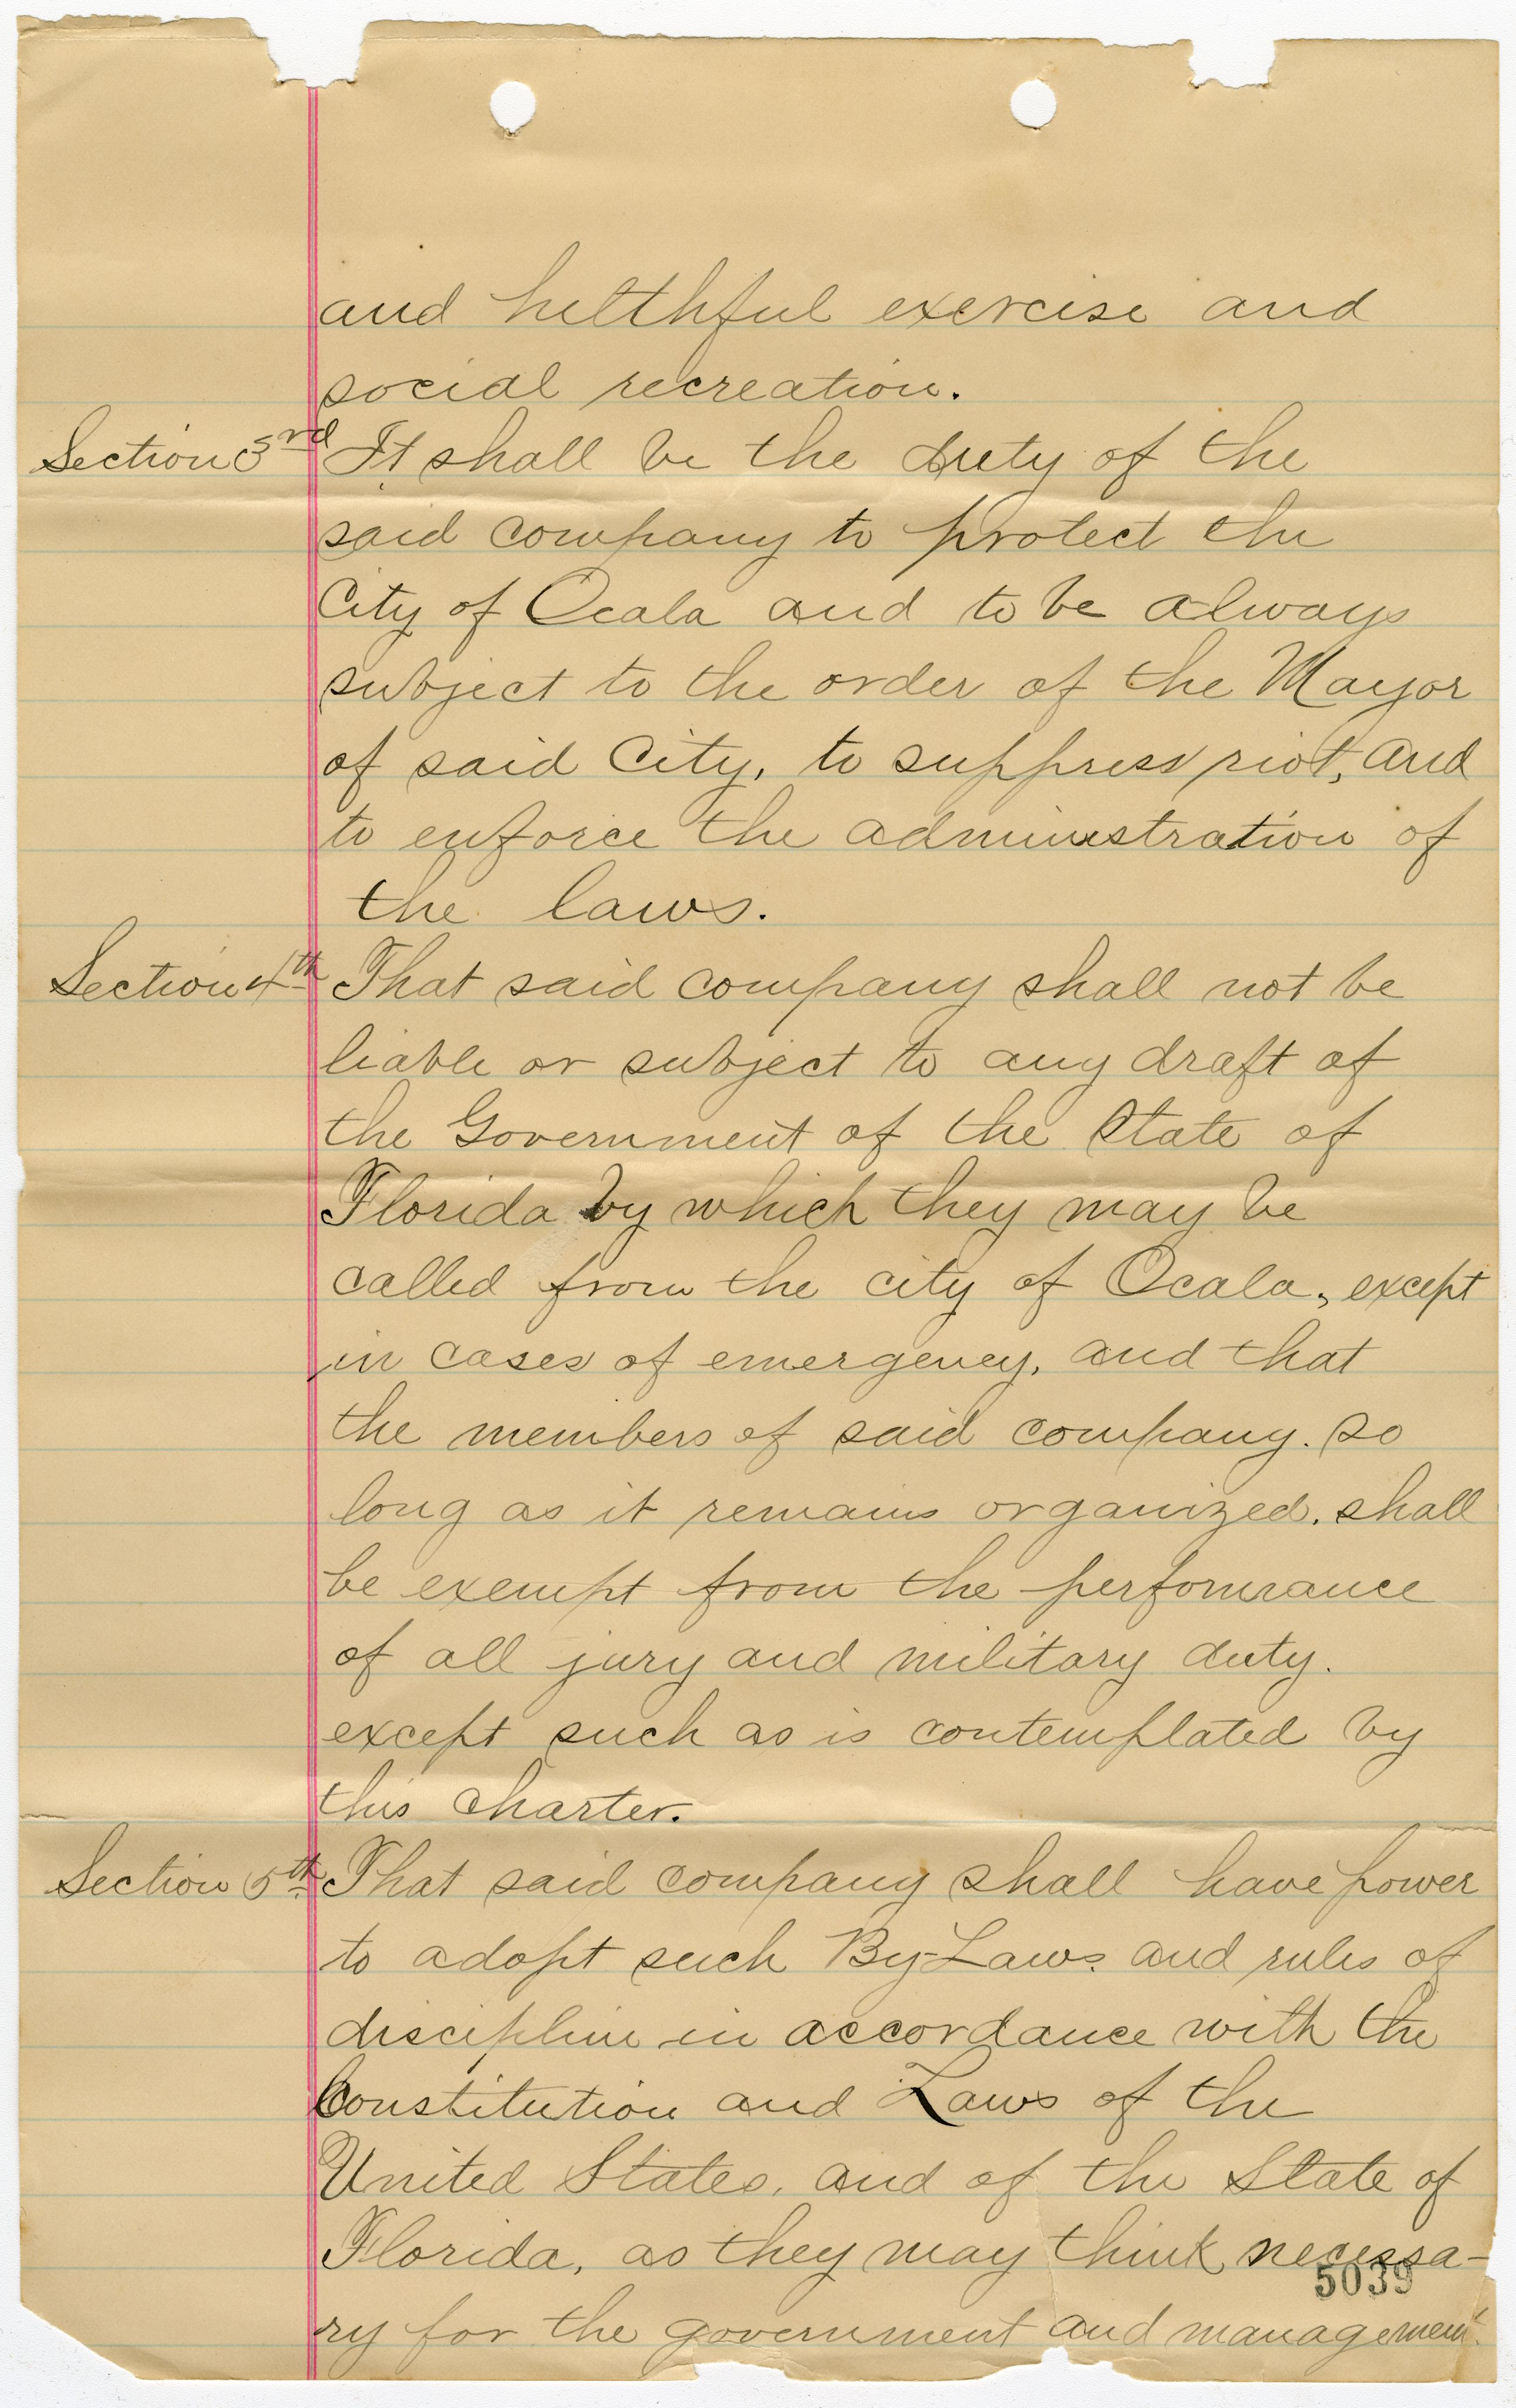 and helthful exercise and
social recreation.
Section 3rd It shall be the duty of the
said company to protect the
City of Ocala and to be always
subject to the order of the Mayor
of said City, to suppress riot, and
to enforce the administration of
the laws.
Section 4th That said company shall not be
liable or subject to any draft of
the Government of the State of
Florida by which they may be
called from the city of Ocala, except
in cases of emergency, and that
the members of said company. so
long as it remains organized. shall
be exempt from the performance
of all jury and military duty.
except such as is contemplated by
this charter.
Section 5th That said company shall have power
to adopt such By-Laws and rules of
discipline in accordance with the
Constitution and Laws of the
United States, and of the State of
Florida, as they may think necessa-
5039
ry for the government and management